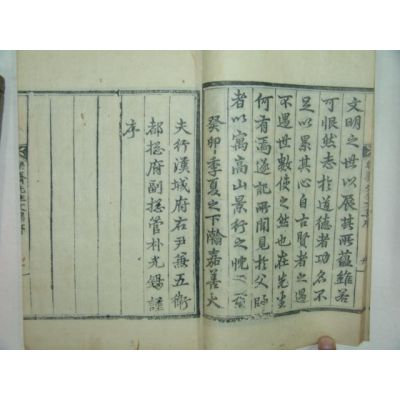 文明之世以展其所蘊雖若
可恨然志於道德者功名不
足以累其心自古賢者之遇
不遇世數使之然也在先生
何有焉遂記所聞見於父師
者以寓高山景行之忱云至
癸卯季夏之下瀚嘉善大
夫行漢城府右尹兼五衛
都摠府副摠管朴光錫謹
序